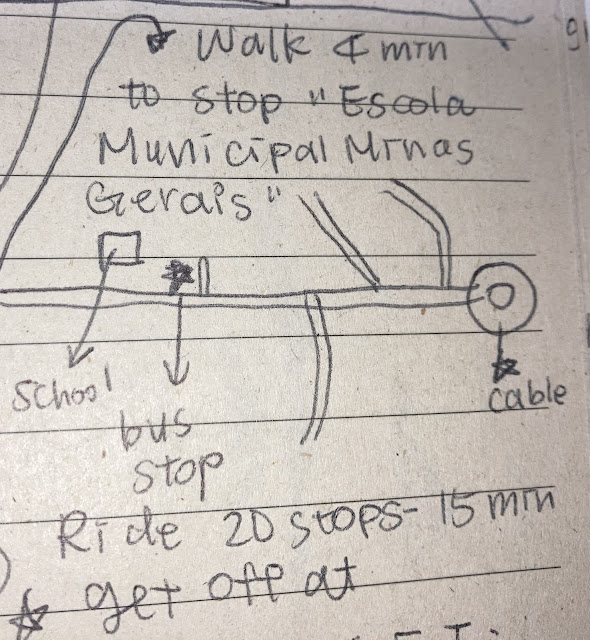 Walk 4 min
to stop "Escola
Municipal Minas
Gerais"
school
bus
stop
cable
Ride 20 stops - 15 min
get off at